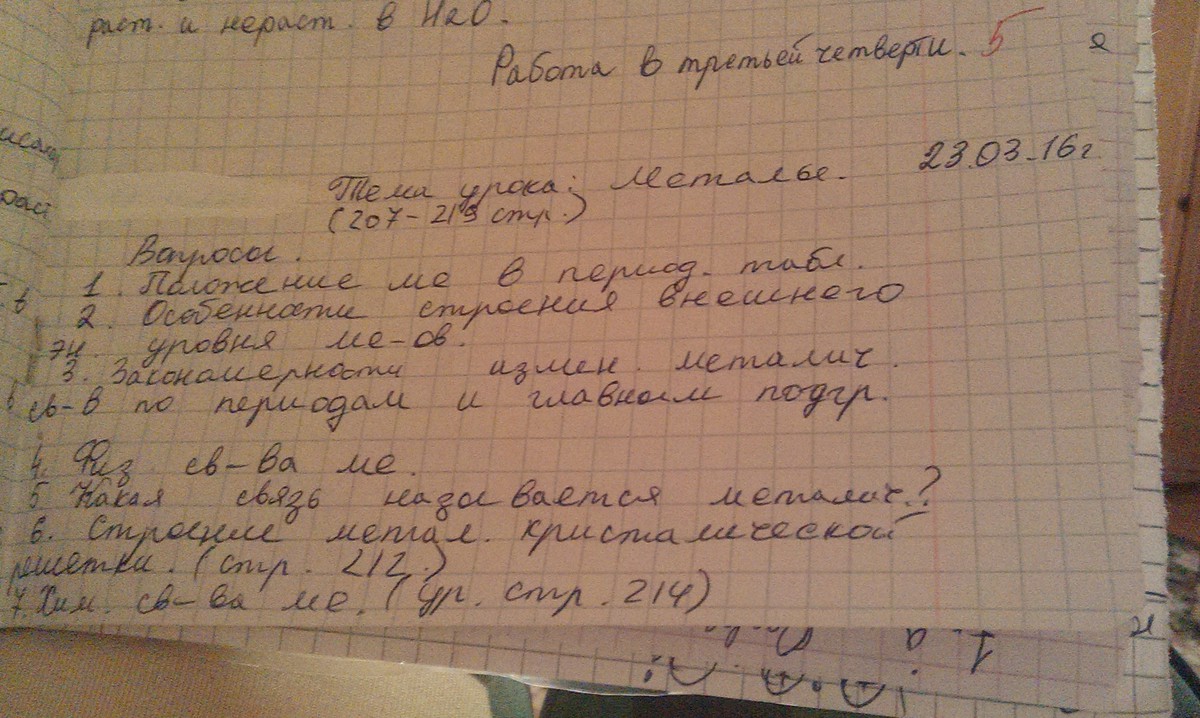 раст. и нераст. в H2O.
Работа в третьей четверти. 5
23.03.16г.
Тема урока: Металлы.
(207-219 стр.)
Вопросы.
1. Положение ме в период. табл.
2. Особенности строения внешнего
эн. уровня ме-ов.
3. Закономерности измен. металич.
св-в по периодам и главным подгр.
4. Физ св-ва ме.
5 Какая связь называется металич.?
6. Строение метал. кристалической
решетки. (стр. 212.)
7. Хим. св-ва ме. (ур. стр. 214)